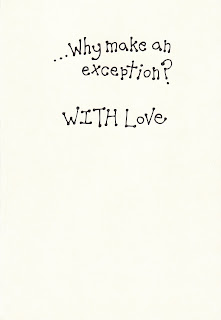 ...Why make an
exception?
WITH LOVE